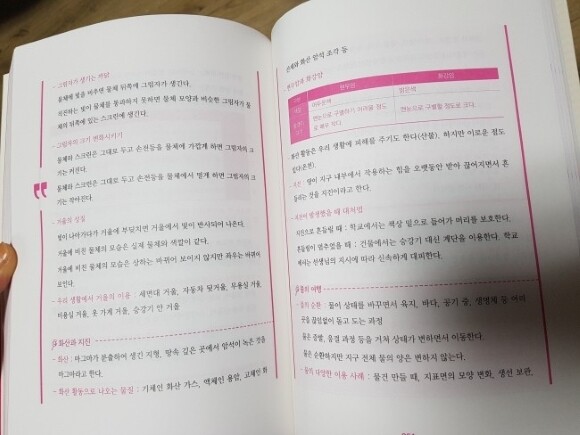 - 그림자가 생기는 과정
물체에 빛을 비추면 물체 뒤쪽에 그림자가 생긴다.
직진하는 빛이 물체를 통과하지 못하면 물체 모양과 비슷한 그림자가 물
체의 뒤쪽에 있는 스크린에 생긴다.
- 그림자의 크기 변화시키기
물체와 스크린은 그대로 두고 손전등을 물체에 가깝게 하면 그림자의 크
기는 커진다.
물체와 스크린은 그대로 두고 손전등을 물체에서 멀게 하면 그림자의 크
기는 작아진다.
- 거울의 성질
빛이 나아가다가 거울에 부딪치면 거울에서 빛이 반사되어 나온다.
거울에 비친 물체의 모습은 실제 물체의 색깔이 같다.
거울에 비친 물체의 모습은 상하는 바뀌어 보이지 않지만 좌우는 바뀌어
보인다.
- 우리 생활에서 거울의 이용 : 세면대 거울, 자동차 뒷거울, 무용실 거울,
미용실 거울, 옷 가게 거울, 승강기 안 거울
화산과 지진
- 화산 : 마그마가 분출하여 생긴 지형, 땅속 깊은 곳에서 암석이 녹은 것을
마그마라고 한다.
- 화산 활동으로 나오는 물질 : 기체인 화산 가스, 액체인 용암, 고체인 화
산재와 화산 암석 조각 등
- 현무암과 화강암
현무암
화강암
어두운색
밝은색
맨눈으로 구별하기 어려울 정도
로 매우 작다.
맨눈으로 구별할 정도로 크다.
- 화산 활동은 우리 생활에 피해를 주기도 한다(산불). 하지만 이로운 점도
있다(온천).
- 지진 : 땅이 지구 내부에서 작용하는 힘을 오랫동안 받아 끊어지면서 흔
들리는 것을 지진이라고 한다.
- 지진이 발생했을 때 대처법
지진으로 흔들릴 때 : 학교에서는 책상 밑으로 들어가 머리를 보호한다.
흔들림이 멈추었을 때 : 건물에서는 승강기 대신 계단을 이용한다. 학교
에서는 선생님의 지시에 따라 신속하게 대피한다.
물의 여행
- 물의 순환 : 물이 상태를 바꾸면서 육지, 바다, 공기 중, 생명체 등 여러
곳을 끊임없이 돌고 도는 과정
물은 증발, 응결 과정 등을 거쳐 상태가 변하면서 이동한다.
물은 순환하지만 지구 전체 물의 양은 변하지 않는다.
- 물의 다양한 이용 사례 : 물건 만들 때, 지표면의 모양 변화, 생선 보관,